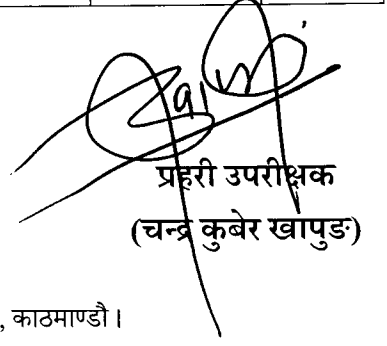 प्रहरी उपरीक्षक
(चन्द्र कुबेर खापुङ)
, काठमाण्डौ।